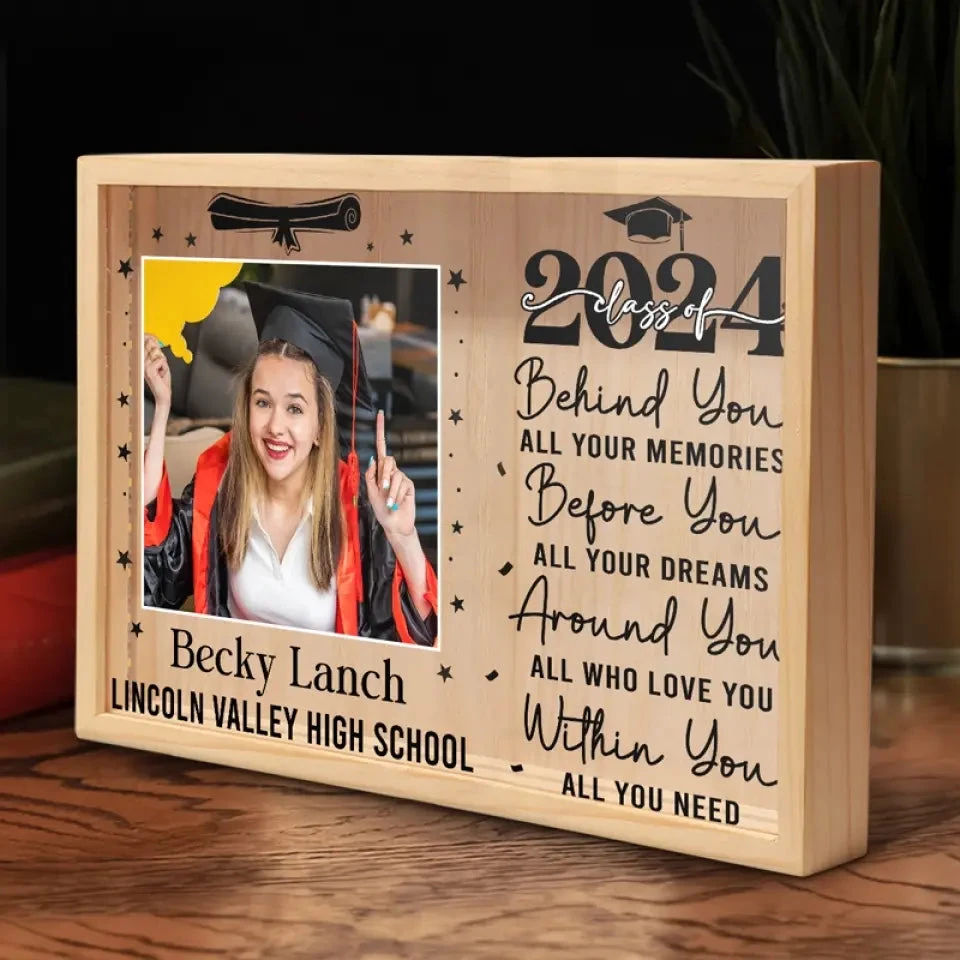 Becky Lanch
LINCOLN VALLEY HIGH SCHOOL
2024
class of
Behind You
ALL YOUR MEMORIES
Before You
ALL YOUR DREAMS
Around You
ALL WHO LOVE YOU
Within You
ALL YOU NEED